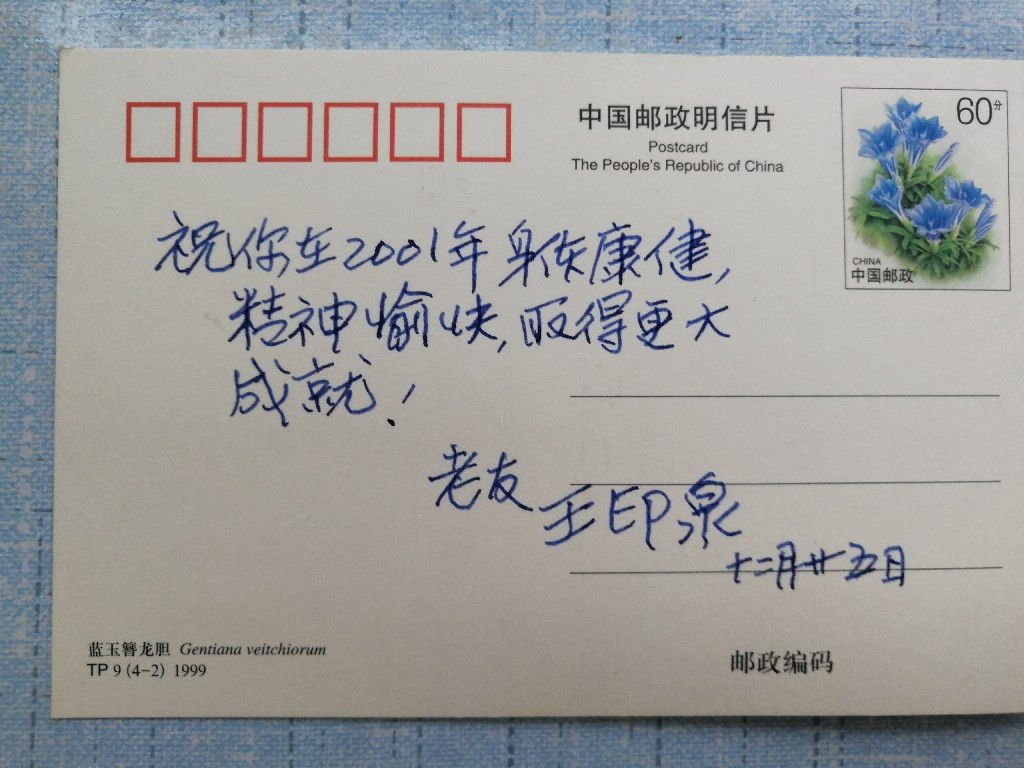 中国邮政明信片
Postcard
The People's Republic of China
60分
CHINA
中国邮政
祝你在2001年身体康健,
精神愉快,取得更大
成就!
老友
王印泉
十二月廿五日
蓝玉簪龙胆 Gentiana veitchiorum
TP 9 (4-2) 1999
邮政编码